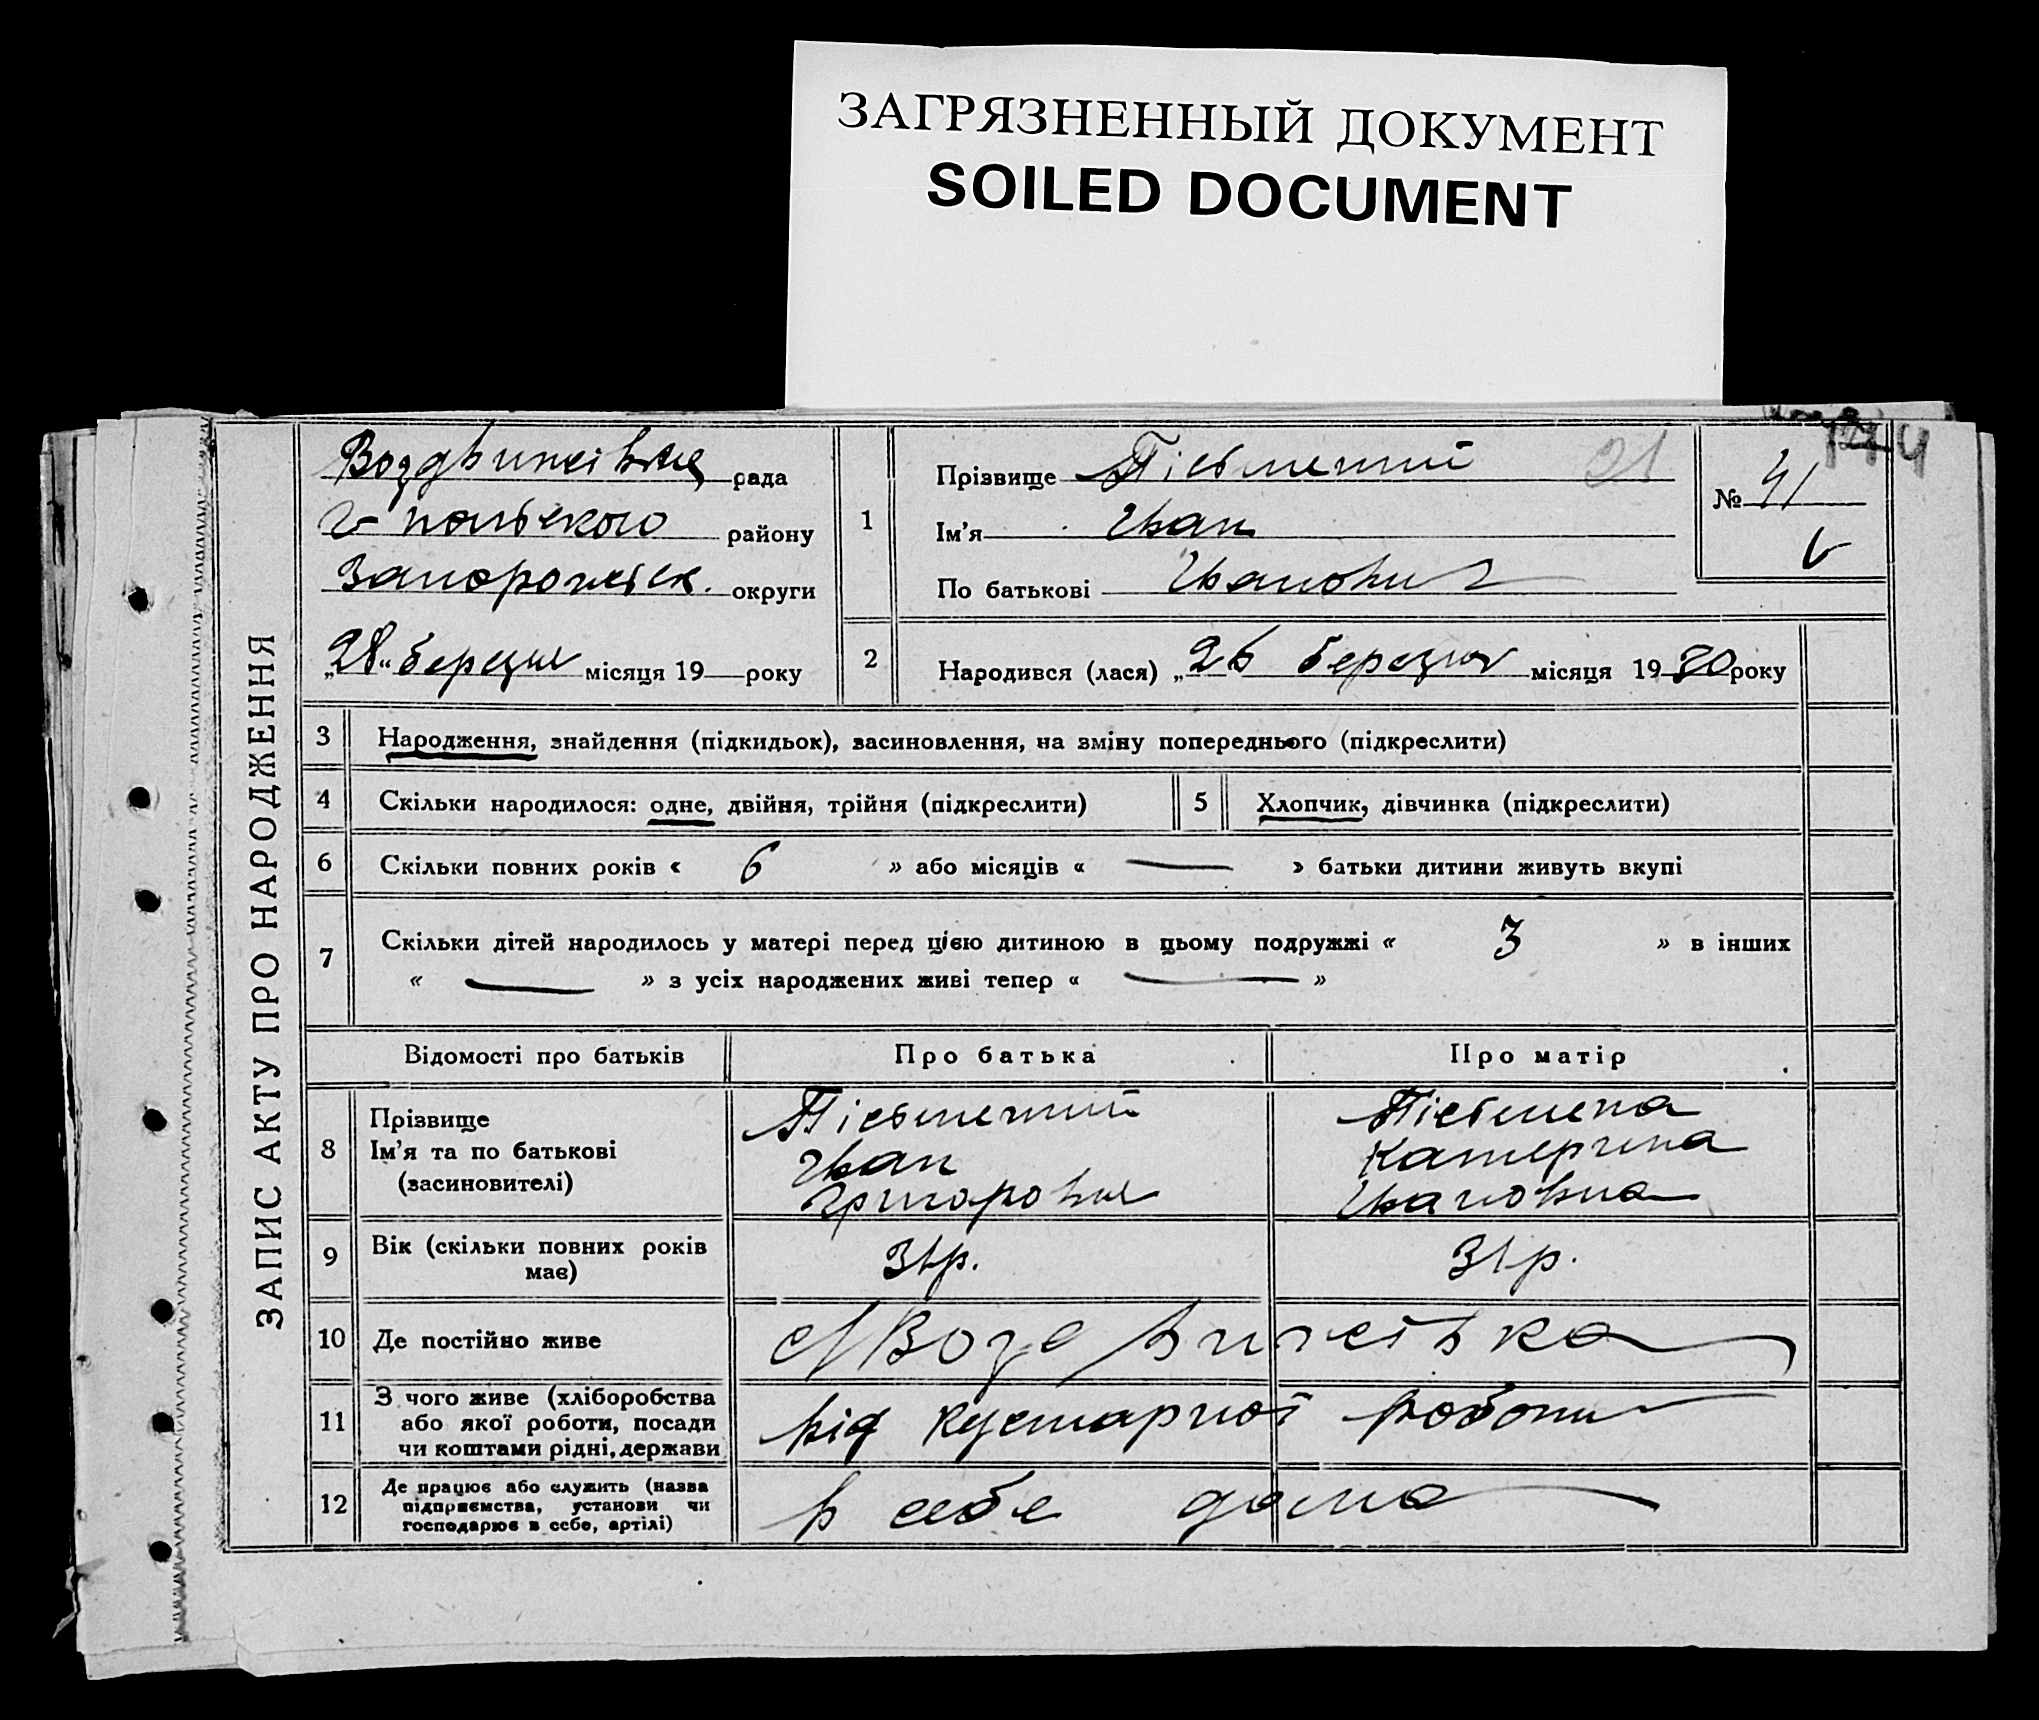 ЗАГРЯЗНЕННЫЙ ДОКУМЕНТ
SOILED DOCUMENT
ЗАПИС АКТУ ПРО НАРОДЖЕННЯ
Воздвижівська рада
Г-польського району
Запоріжськ. округи
„28" березня місяця 19 року
1
Прізвище Письменний 21
Ім'я Іван
По батькові Іванович
№ 41
2 Народився (лася) „26 березня місяця 1930 року
3 Народження, знайдення (підкидьок), засиновлення, на зміну попереднього (підкреслити)
4 Скільки народилося: одне, двійня, трійня (підкреслити) 5 Хлопчик, дівчинка (підкреслити)
6 Скільки повних років « 6 » або місяців « — » батьки дитини живуть вкупі
7 Скільки дітей народилось у матері перед цією дитиною в цьому подружжі « 3 » в інших
« — » з усіх народжених живі тепер « — »
Відомості про батьків Про батька Про матір
8 Прізвище
Ім'я та по батькові
(засиновителі)
Письменний
Іван
Григорович
Письмена
Катерина
Івановна
9 Вік (скільки повних років
має)
31р. 31р.
10 Де постійно живе с Воздвижівка
11 З чого живе (хліборобства
або якої роботи, посади
чи коштами рідні, держави
від кустарної роботи
12 Де працює або служить (назва
підприємства, установи чи
господарює в себе, артілі)
в себе дома